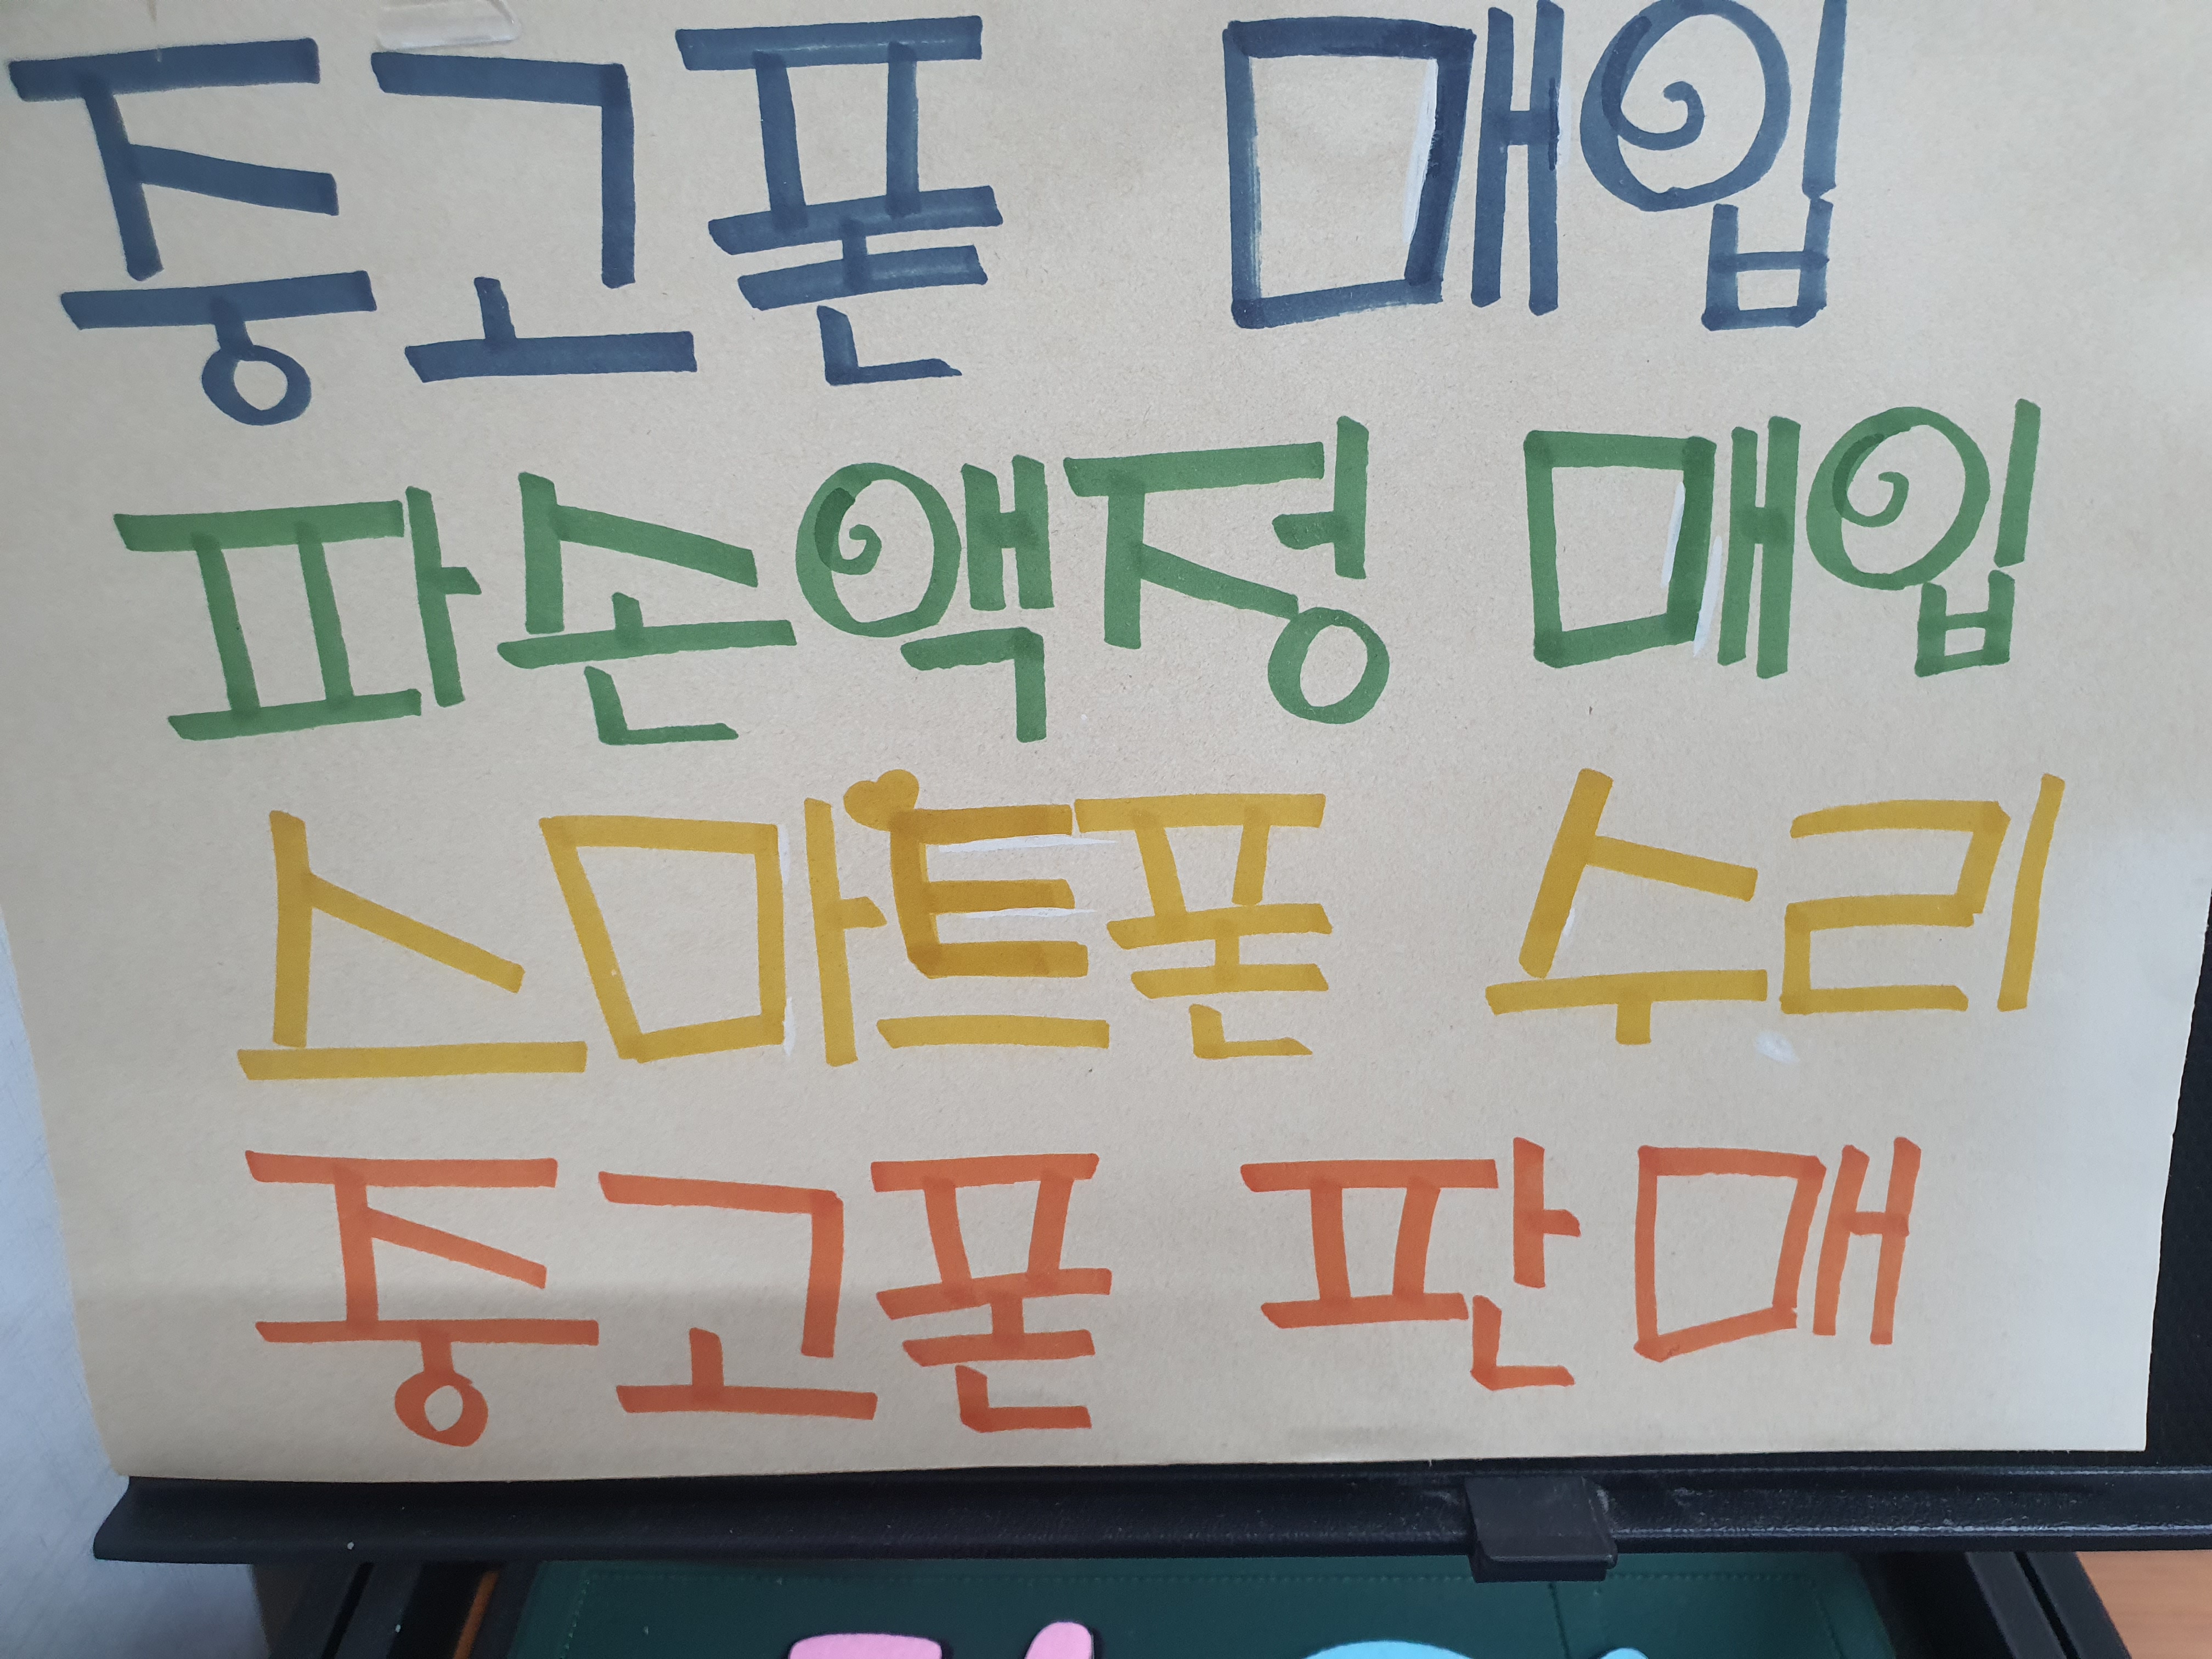 중고폰 매입
파손액정 매입
스마트폰 수리
중고폰 판매